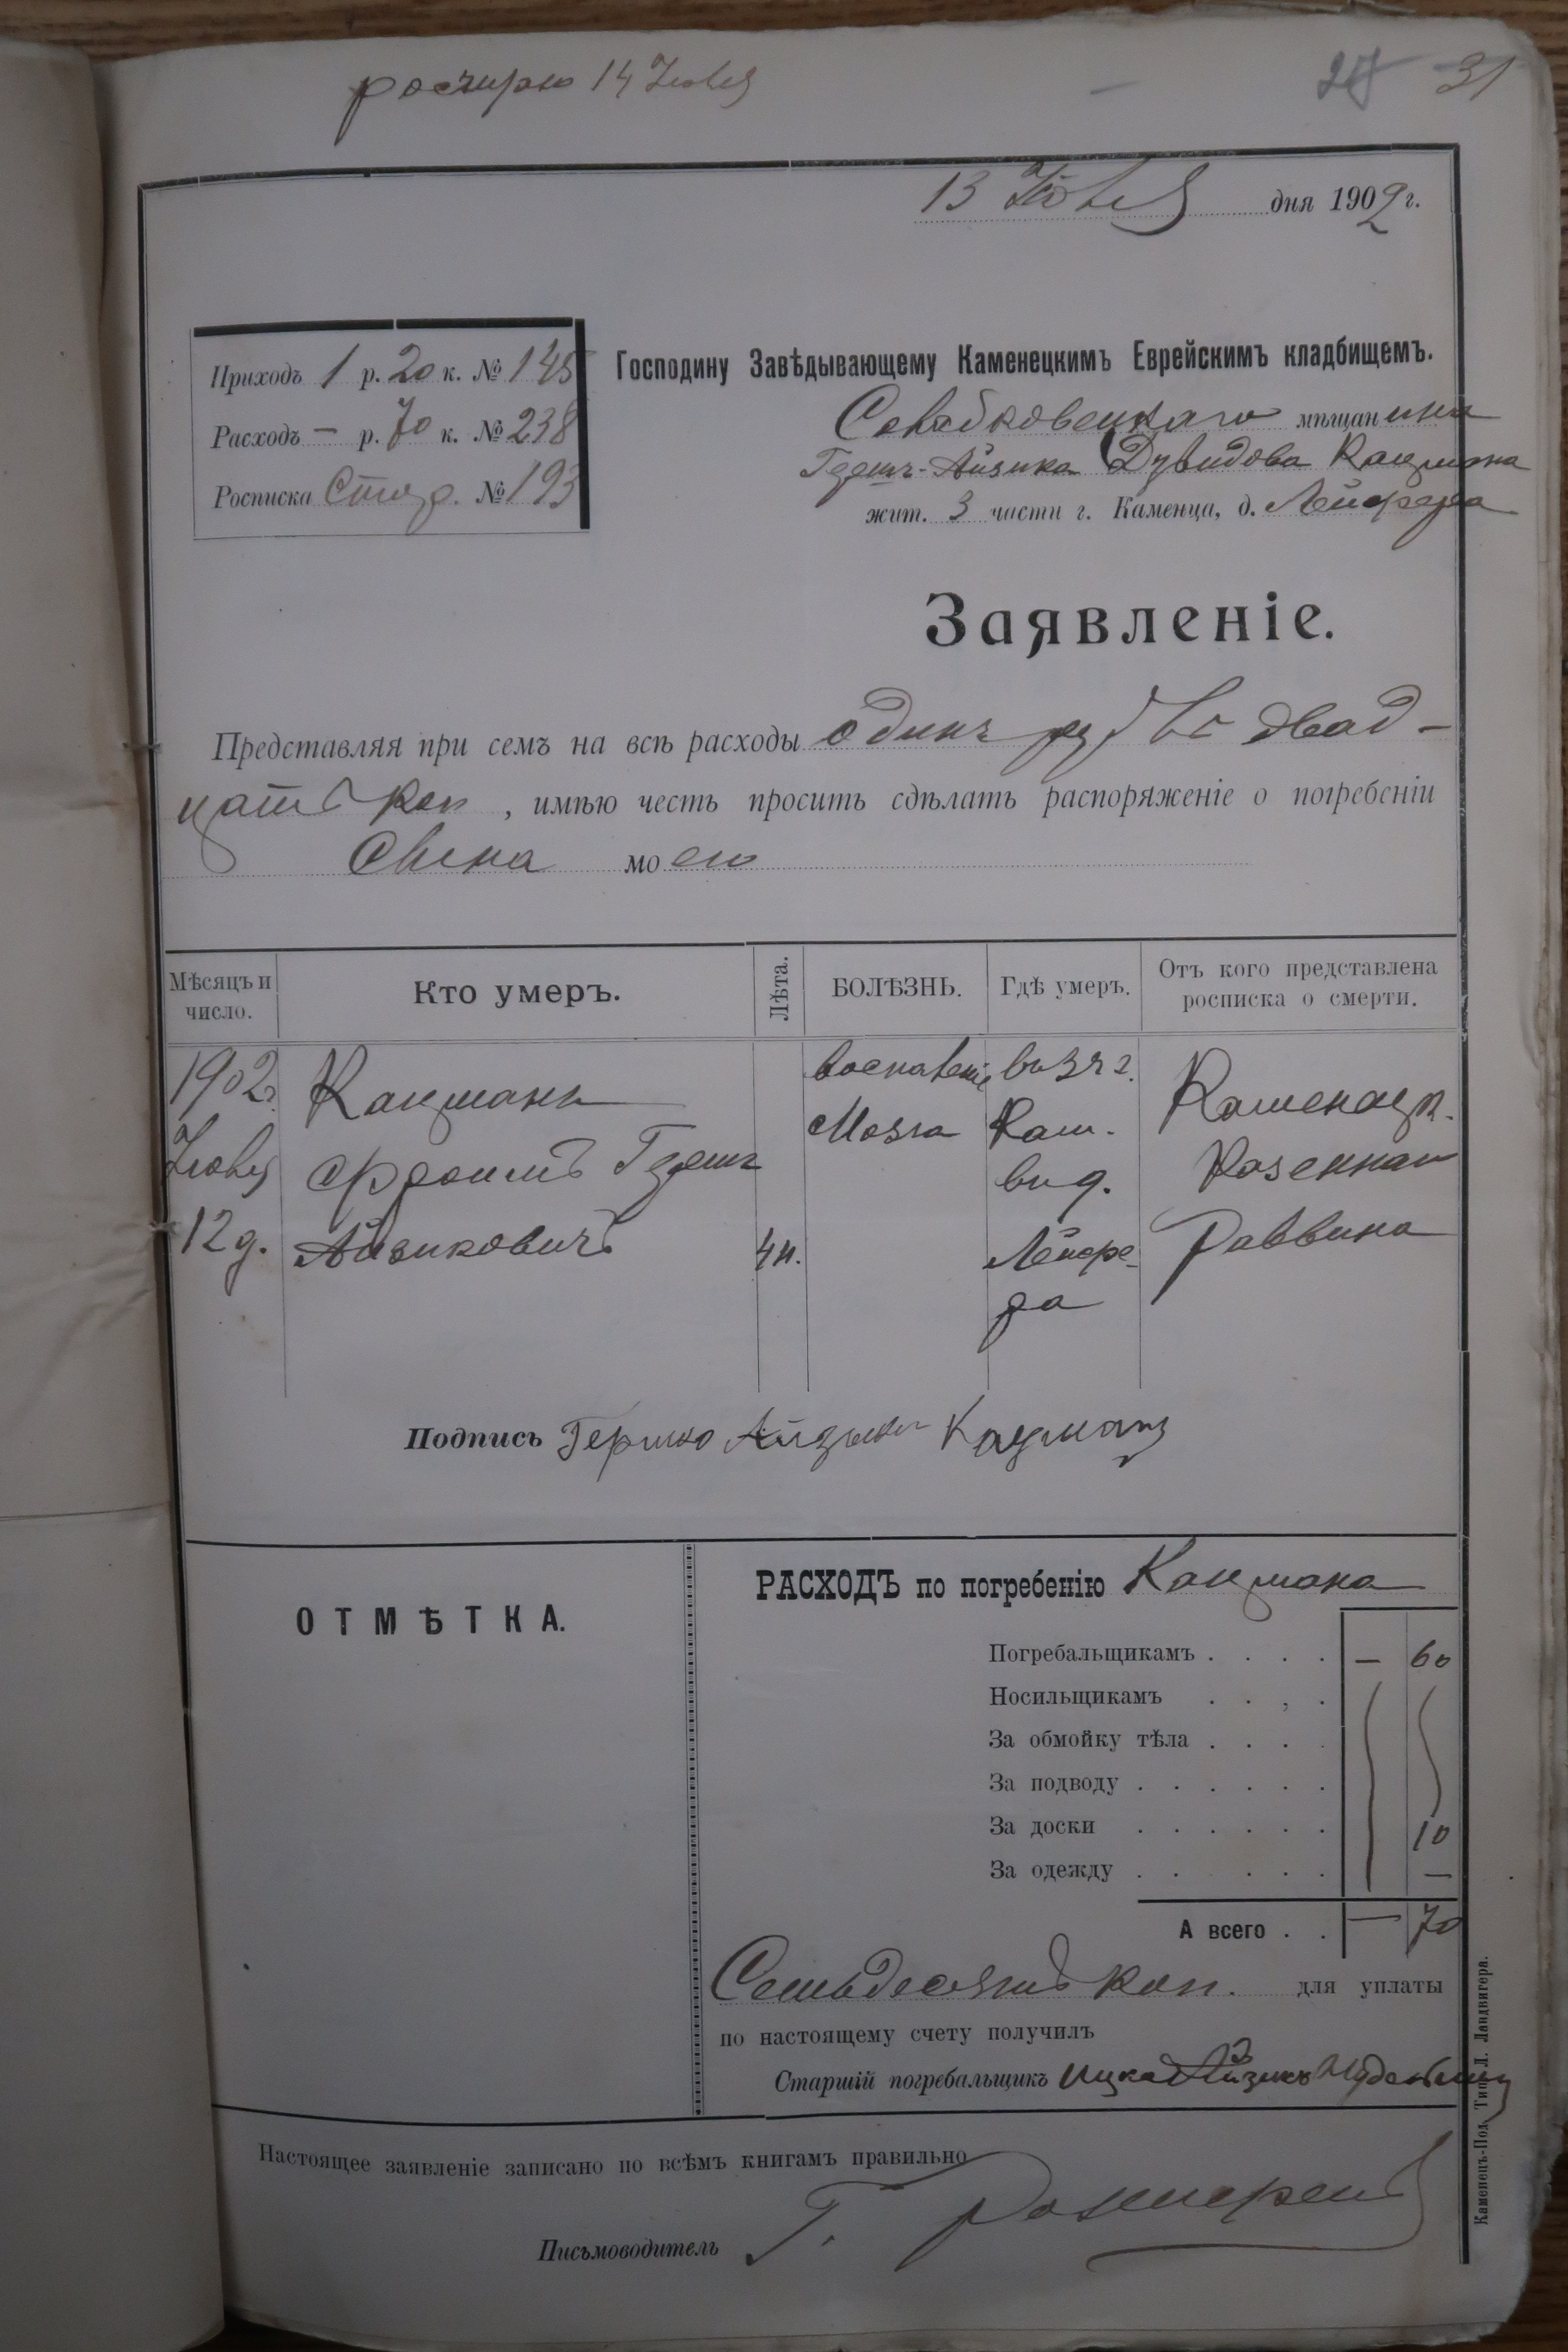 14 Іюля 31
13 Іюля дня 1902 г.
Приходъ 1 р. 20 к. № 145
Расходъ — р. 70 к. № 238
Росписка № 193
Господину Завѣдывающему Каменецкимъ Еврейскимъ кладбищемъ.
мѣщанина
Айзика Дувидова Кацмана
жит. 3 части г. Каменца, д. Лейфера
Заявленіе.
Представляя при семъ на всѣ расходы одинъ рубль двад-
цать коп , имѣю честь просить сдѣлать распоряженіе о погребеніи
сына моего
Мѣсяцъ и число.
Кто умеръ.
Лѣта.
БОЛѢЗНЬ.
Гдѣ умеръ.
Отъ кого представлена росписка о смерти.
1902 г.
Іюля
12 д.
Кацманъ
Фроимъ
Айзиковичъ
воспаленіе
Мозга
Кам.
Лейфе-
ра
Каменецк.
Казеннаго
Раввина
Подпись Гершко Айзикъ Кацманъ
ОТМѢТКА.
РАСХОДЪ по погребенію Кацмана
Погребальщикамъ . . . . — 60
Носильщикамъ . . , .
За обмойку тѣла . . . .
За подводу . . . . . .
За доски . . . . . . 10
За одежду . . . . . . —
А всего . . — 70
Семьдесять коп. для уплаты
по настоящему счету получилъ
Старшій погребальщикъ Ицко Айзикъ
Настоящее заявленіе записано по всѣмъ книгамъ правильно
Письмоводитель Г.
Каменецъ-Под. Тип. Л. Ландвигера.